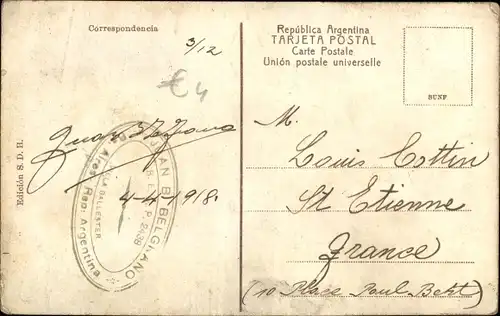 Correspondencia
3/12
€4
4-4-1918.
JUAN B. BELGRANO
P. 2438
VILLA BALLESTER
Bs. Aires - Rep: Argentina
Edición S. D. H.
República Argentina
TARJETA POSTAL
Carte Postale
Unión postale universelle
BUNF
M.
Louis Cottin
St Etienne
France
(10 Place Paul Bert)